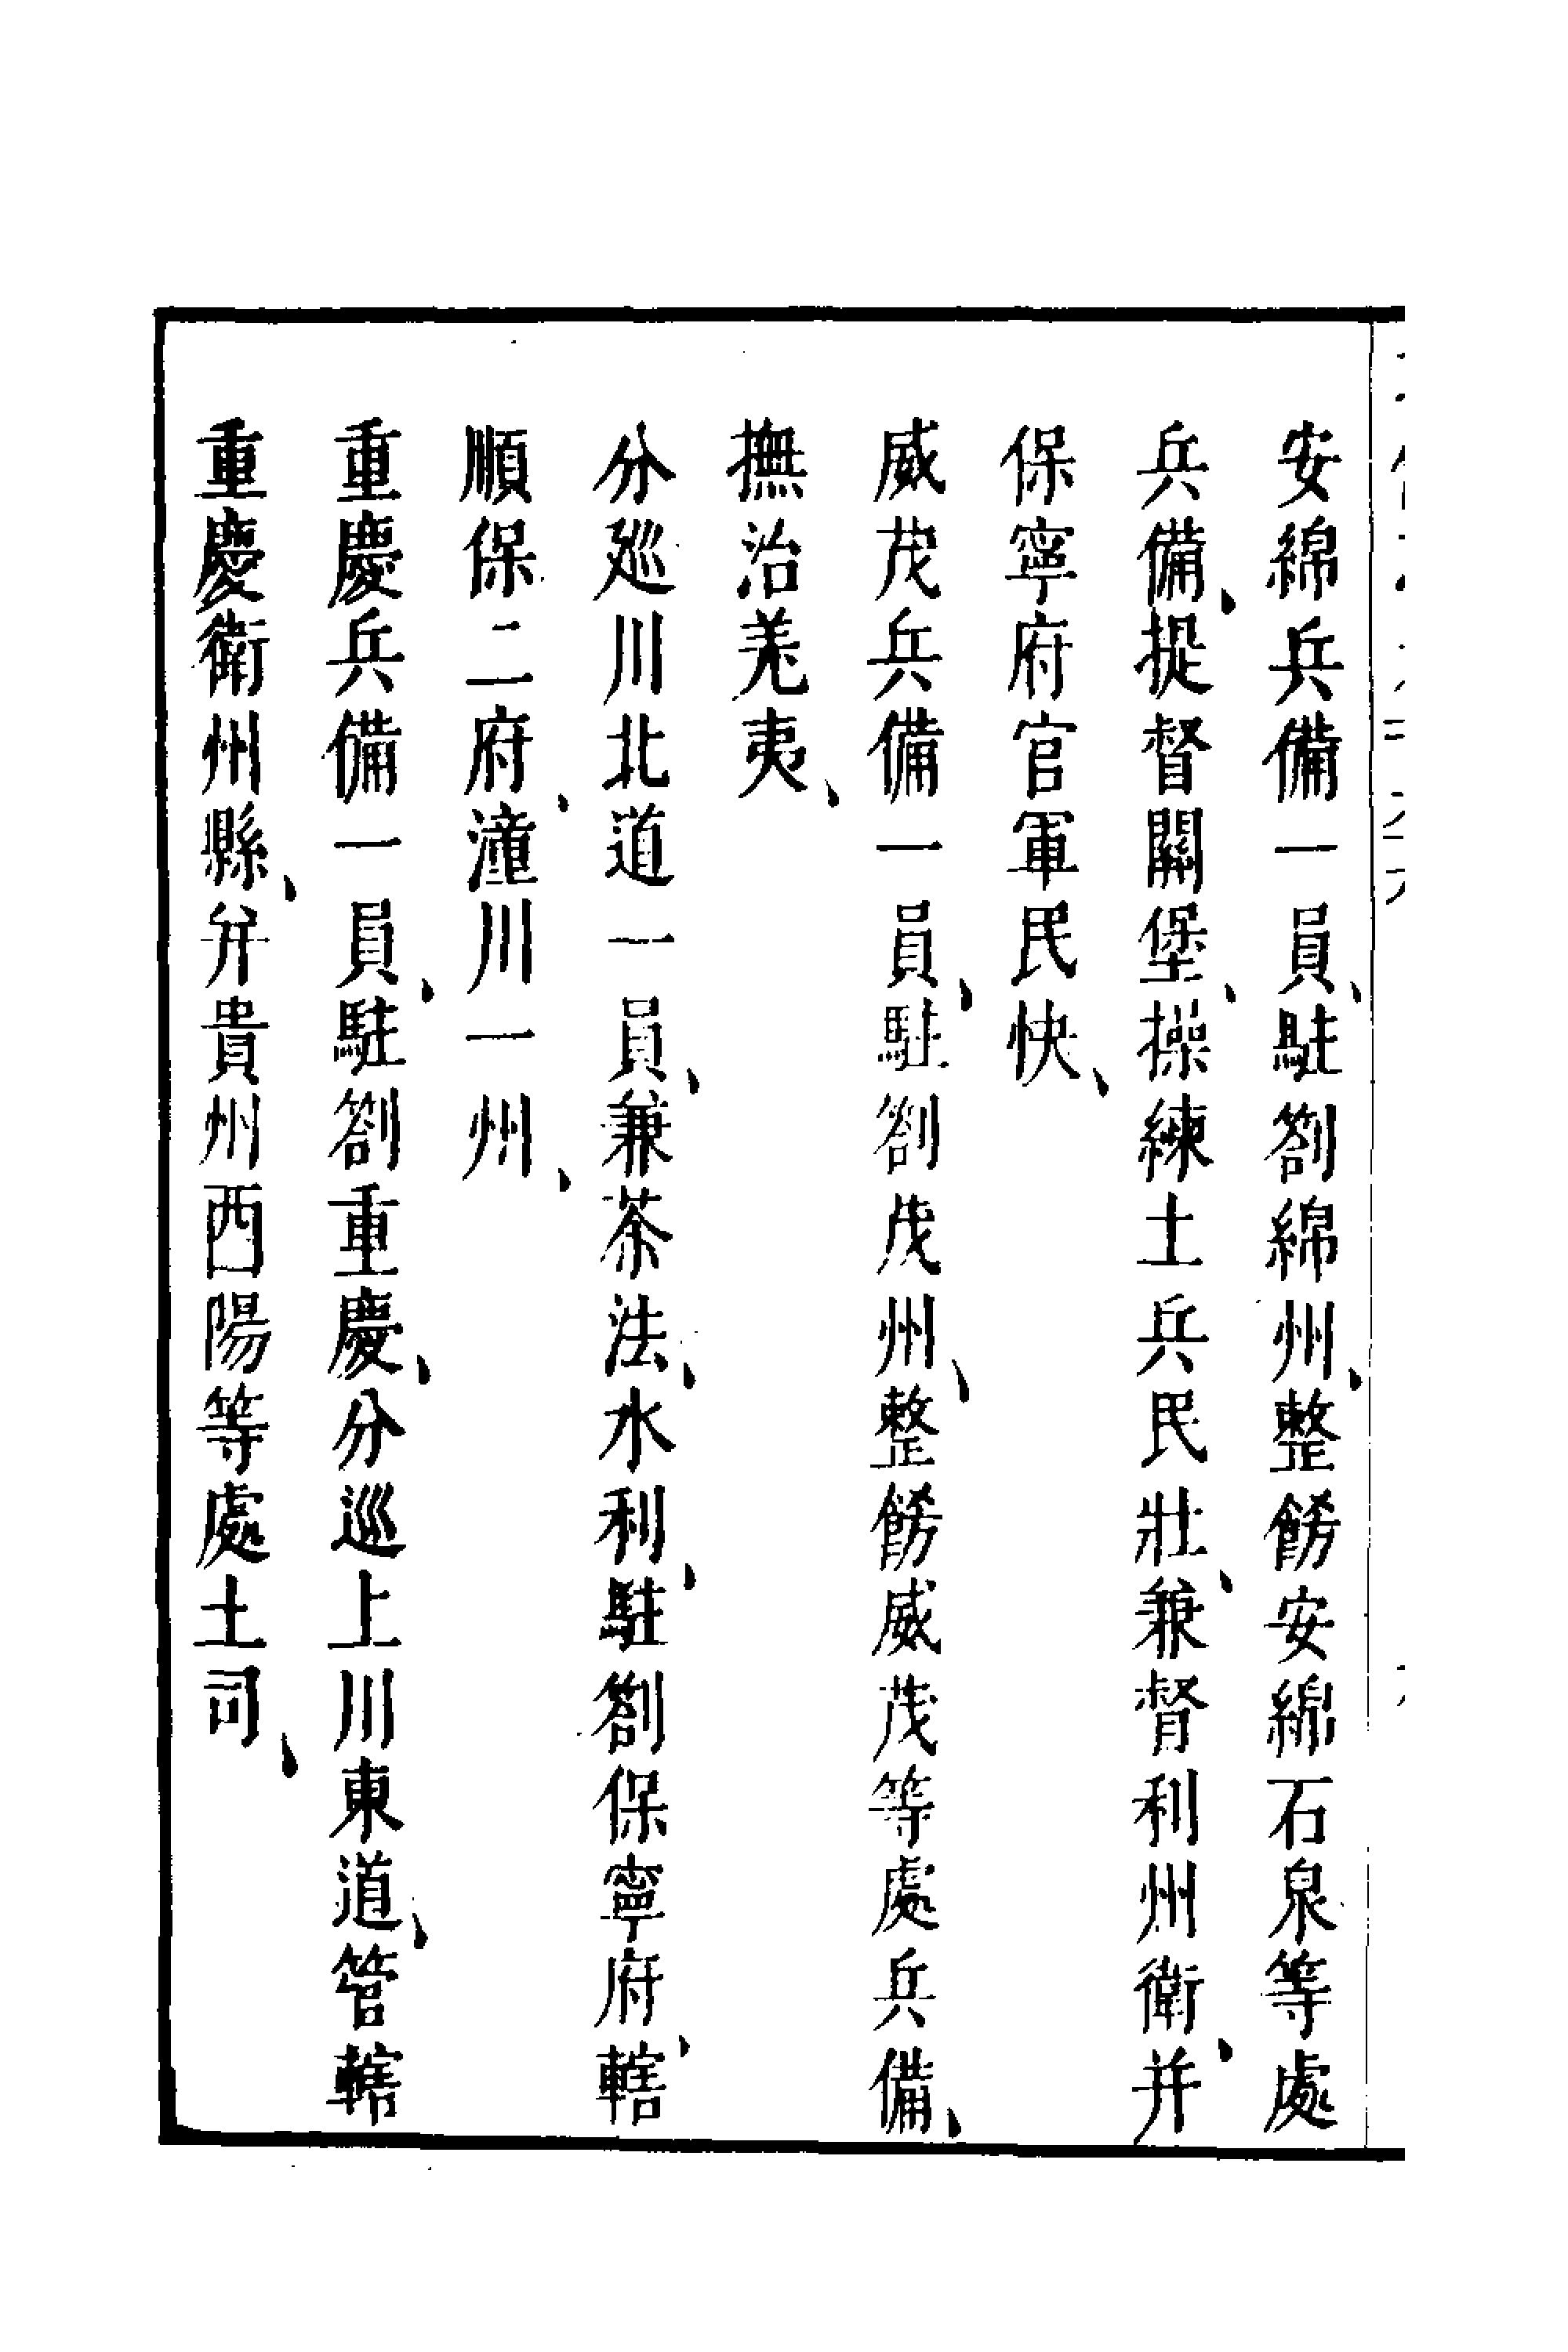 安綿兵備一員、駐劄綿州、整飭安綿石泉等處
兵備、提督關堡、操練土兵民壯、兼督利州衛、并
保寧府官軍民快、
威茂兵備一員、駐劄茂州、整飭威茂等處兵備、
撫治羌夷、
分廵川北道一員、兼茶法、水利、駐劄保寧府、轄
順保二府、潼川一州、
重慶兵備一員、駐劄重慶、分巡上川東道、管轄
重慶衛州縣、并貴州酉陽等處土司、